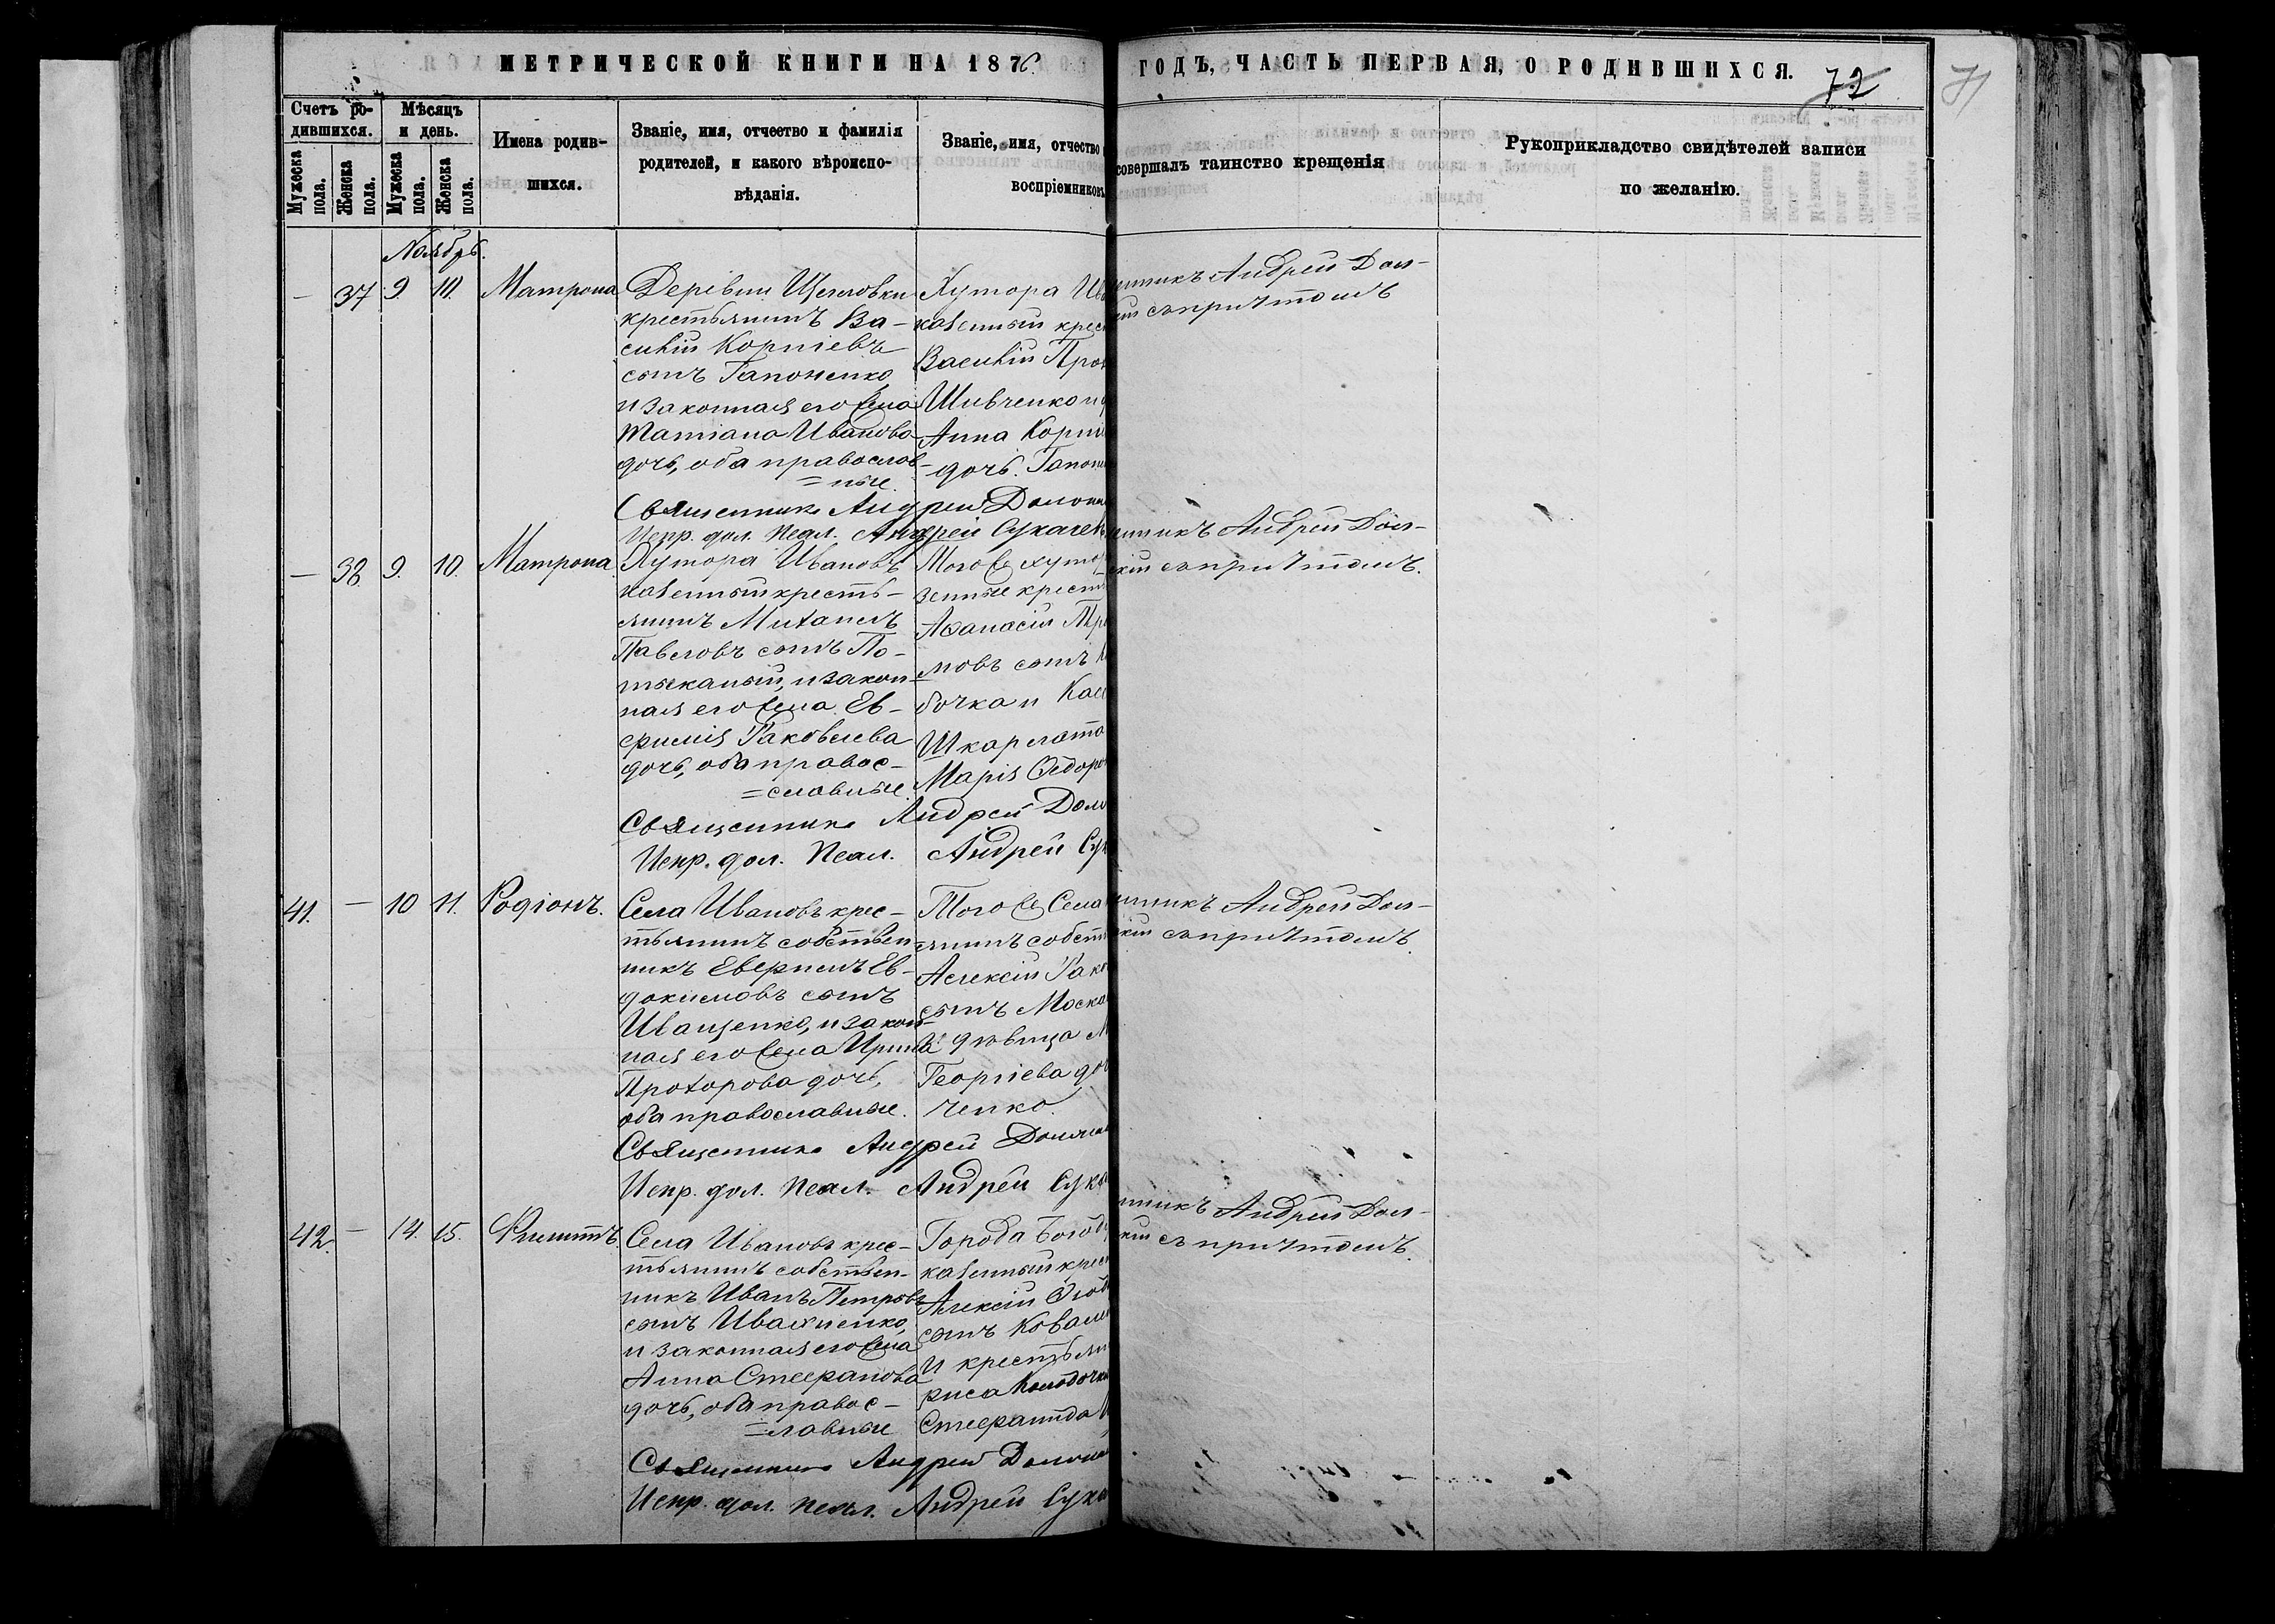 МЕТРИЧЕСКОЙ КНИГИ НА 1876
ГОДЪ, ЧАСТЬ ПЕРВАЯ, О РОДИВШИХСЯ.
72
71
Счетъ ро-
дившихся.
Мужеска пола.
Женска пола.
Мѣсяцъ
и день.
Мужеска пола.
Женска пола.
Имена родив-
шихся.
Званіе, имя, отчество и фамилія
родителей, и какого вѣроиспо-
вѣданія.
Званіе, имя, отчество
воспріемниковъ
совершалъ таинство крещенія
Рукоприкладство свидѣтелей записи
по желанію.
Ноябрь.
— 37 9. 10. Матрона
Деревни Щегловки
крестьянинъ Ва-
силій Корніевъ
сынъ Гапоненко
и законная его жена
Татіана Иванова
дочь, оба православ-
=ные.
Хутора Ив
казенный крес
Василій Про
Шивченко и
Анна Корні
дочь Гапон
нникъ Андрей Дол-
кій съ причтомъ
Священникъ Андрей
Испр. дол. Псал. Андрей
— 38 9. 10. Матрона.
Хутора Ивановъ
казенный кресть-
янинъ Михаилъ
Павловъ сынъ По-
тыканый, и закон-
ная его жена Ев-
фимія Іаковлева
дочь, оба правос-
=славные.
Того же хуто
зенные крест
Аѳанасій
мовъ сынъ
бочка и
Шкарлато
Марія Ѳедоро
нникъ Андрей Дол-
скій съ причтомъ.
Священникъ Андрей
Испр. дол. Псал. Андрей
41. — 10 11. Родіонъ.
Села Ивановъ крес-
тьянинъ собствен-
никъ Евфимъ Ев-
докимовъ сынъ
Иващенко, и закон-
ная его жена Ирина
Прохорова дочь,
оба православные.
Того же Села
янинъ собст
Алексій Іако
сынъ Моска
и дѣвица М
Георгіева до
ченко.
нникъ Андрей Дол-
скій съ причтомъ
Священникъ Андрей
Испр. дол. Псал. Андрей
42. — 14. 15. Филиппъ.
Села Ивановъ крес-
тьянинъ собствен-
никъ Иванъ Петровъ
сынъ Ивахненко,
и законная его жена
Анна Стефанова
дочь, оба правос-
=лавные
Города Бого
казенный крес
Алексій Ѳеод
сынъ Ковале
и крестьян
Стефанида
нникъ Андрей Дол-
кій съ причтомъ.
Священникъ Андрей
Испр. дол. Псал. Андрей